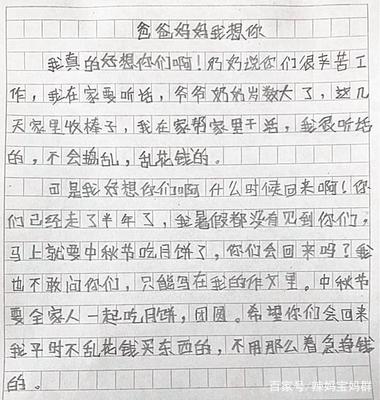 爸爸妈妈我想你
我真的好想你们啊！奶奶说你们很辛苦工
作，我在家要听话，爷爷奶奶岁数大了，这几
天家里收棒子，我在家帮家里干活，我很听话
的，不会捣乱，乱花钱的。
可是我好想你们啊 什么时候回来啊！你
们已经走了半年了，我暑假都没有见到你们，
马上就要中秋节吃月饼了，你们会回来吗？我
也不敢问你们，只能写在我的作文里。中秋节
要全家人一起吃月饼，团圆。希望你们会回来
我平时不乱花钱买东西的，不用那么着急挣钱
的。
百家号/辣妈宝妈群